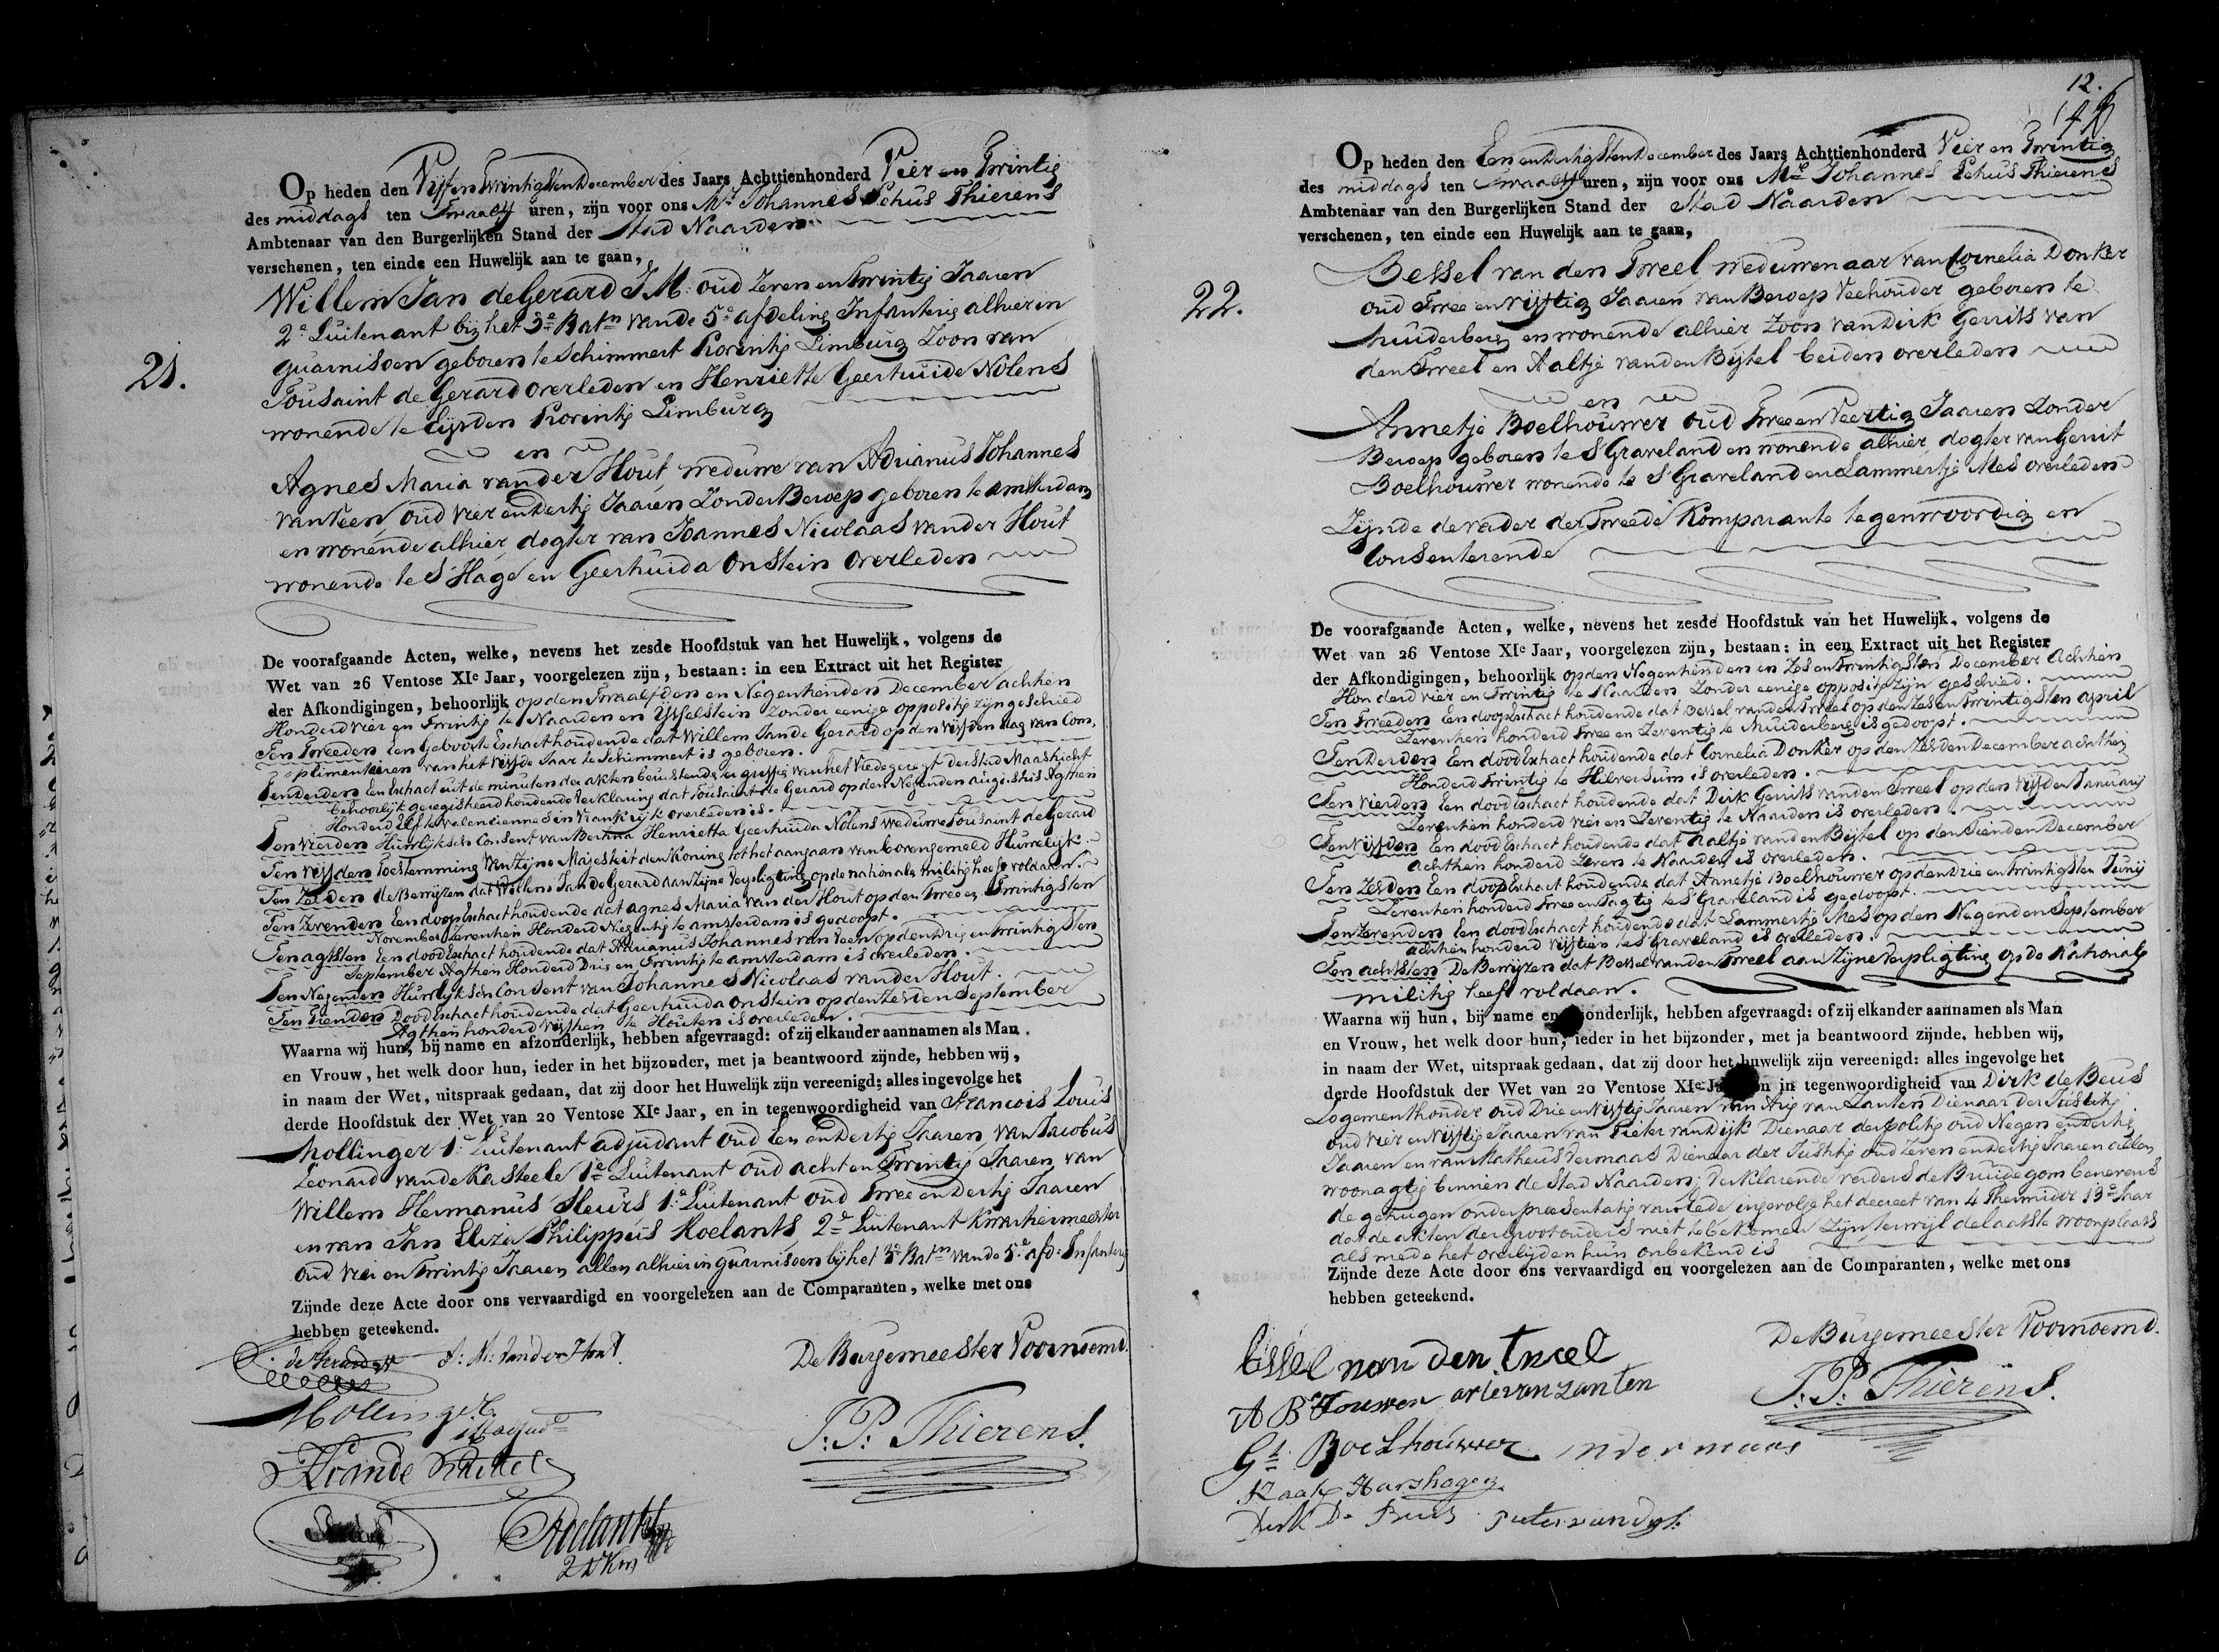 Op heden den Vijf en Twintigsten December des Jaars Achttienhonderd Vier en Twintig
des middags ten Twaalf uren, zijn voor ons Mr Johannes Pehus Thierens
Ambtenaar van den Burgerlijken Stand der Stad Naarden
verschenen, ten einde een Huwelijk aan te gaan,
21.
Willem Jan de Gerard J.M. oud Zeven en Twintig Jaaren
2e Luitenant bij het 3e Batn van de 5e afdeling Infanterij alhier in
guarnisoen geboren te Schimmert Provintij Limburg Zoon van
Tousaint de Gerard overleden en Henriette Geertruide Nolens
wonende te Eijsden Provintij Limburg
en
Agnes Maria van der Hout, weduwe van Adrianus Johannes
van Veen, oud vier en Dertig Jaaren Zonder Beroep geboren te Amsterdam
en wonende alhier, dogter van Joannes Nicolaas van der Hout
wonende te S'Hage en Geertruida Onstein overleden
De voorafgaande Acten, welke, nevens het zesde Hoofdstuk van het Huwelijk, volgens de
Wet van 26 Ventose XIe Jaar, voorgelezen zijn, bestaan: in een Extract uit het Register
der Afkondigingen, behoorlijk op den Twaalfden en Negentienden December achtien
Honderd vier en Twintig te Naarden en IJsselstein zonder eenige oppositij zijn geschied
Ten Tweeden Een Geboorte Exthact houdende dat Willem Jan de Gerard op den vijfden dag van Com-
plimentairen van het vijfde Jaar te Schimmert is geboren.
Ten derden Een Exthact uit de minuten der akten berustende ter griffij van het Vredegeregt der Stad Maastricht
behoorlijk geregistreerd houdende Verklaring dat Tousaint de Gerard op den Negenden augustus Agtien
Honderd Elf te valenciennes in Vrankrijk overleden is.
Ten vierden Huwlijksch Consent van Bertina Henrietta Geertruida Nolens weduwe Tousaint de Gerard
Ten vijfden Toestemming Van Zijne Majesteit den Koning tot het aangaan van bovengemeld Huwelijk
Ten Zesden de Bewijzen dat Willem Jan De Gerard aan Zijne Verpligting op de nationale militij heeft voldaan.
Ten Zevenden Een doop Exthact houdende dat Agnes Maria van der Hout op den Twee en Twintigsten
November Zeventien Honderd Negentig te amsterdam is gedoopt.
Ten agtsten Een dood Exthact houdende dat Adrianus Johannes van Veen op den Drie en Twintigsten
September Agthen Honderd Drie en Twintig te amsterdam is overleden.
Ten Negenden Huwlijksch Consent van Johannes Nicolaas van der Hout.
Ten Tienden Dood Exthact houdende dat Geertruida Onstein op den Zesden September
Agthen honderd Vijftien te Houten is overleden.
Waarna wij hun, bij name en afzonderlijk, hebben afgevraagd: of zij elkander aannamen als Man
en Vrouw, het welk door hun, ieder in het bijzonder, met ja beantwoord zijnde, hebben wij,
in naam der Wet, uitspraak gedaan, dat zij door het Huwelijk zijn vereenigd: alles ingevolge het
derde Hoofdstuk der Wet van 20 Ventose XIe Jaar, en in tegenwoordigheid van Francois Louis
Mollinger 1e Luitenant adjudant oud Een en Dertig Jaaren, van Jacobus
Leonard van de Kasteele 1e Luitenant oud acht en Twintig Jaaren van
Willem Hermanus Sleurs 1e Luitenant oud Twee en Dertig Jaaren
en van Jan Eliza Philippus Roelants, 2e Luitenant Kwartiermeester
oud Vier en Twintig Jaaren allen alhier in guarnisoen bij het 3e Batn van de 5e afd: Infanterij
Zijnde deze Acte door ons vervaardigd en voorgelezen aan de Comparanten, welke met ons
hebben geteekend.
de Gerard A: M: Van der Hout De Burgemeester Voornoemd.
Mollinger
J. P. Thierens.
Roelants
2 Lt Km
12.
Op heden den Een en Dertigsten December des Jaars Achttienhonderd Vier en Twintig
des middags ten Twaalf uren, zijn voor ons Mr Johannes Pehus Thierens
Ambtenaar van den Burgerlijken Stand der Stad Naarden
verschenen, ten einde een Huwelijk aan te gaan,
22.
Bessel van den Tweel weduwenaar van Cornelia Donker
oud Twee en vijftig Jaaren van Beroep Veehouder geboren te
Muiderberg en wonende alhier Zoon van Dirk Gerrits van
den Tweel en Aaltje van den Bijtel beiden overleden
en
Annetje Boelhouwer oud Twee en Veertig Jaaren Zonder
Beroep geboren te S Graveland en wonende alhier, dogter van Gerrit
Boelhouwer wonende te S'Graveland en Lammertje Mes overleden
Zijnde de vader der Tweede Komparante tegenwoordig en
Consenterende
De voorafgaande Acten, welke, nevens het zesde Hoofdstuk van het Huwelijk, volgens de
Wet van 26 Ventose XIe Jaar, voorgelezen zijn, bestaan: in een Extract uit het Register
der Afkondigingen, behoorlijk op den Negentienden en Zes en Twintigsten December Achtien
Honderd vier en Twintig te Naarden Zonder eenige oppositij Zijn geschied.
Ten Tweeden Een doop Exthact houdende dat Bessel van den Tweel op den Zes en Twintigsten april
Zeventien honderd Twee en Zeventig te Muiderberg is gedoopt.
Ten Derden Een dood Exthact houdende dat Cornelia Donker op den Zesden December achthen
Honderd Twintig te Hilversum is overleden.
Ten vierden Een dood Exthact houdende dat Dirk Gerrits van den Tweel op den vijfden Januarij
Zeventien honderd vier en Zeventig te Naarden is overleden.
Ten vijfden Een dood Exthact houdende dat Aaltje van den Bijtel op den Tienden December
achthen honderd Zeven te Naarden is overleden.
Ten Zesden Een doop Exthact houdende dat Annetje Boelhouwer op den Drie en Twintigsten Junij
Zeventien honderd Twee en Tagtig te S'Graveland is gedoopt.
Ten Zevenden Een dood Exthact houdende dat Lammertje Mes op den Negenden September
achthen honderd Vijftien te S Graveland is overleden.
Ten achtsten De Bewijzen dat Bessel van den Tweel aan Zijne Verpligting op de Nationale
militij heeft voldaan.
Waarna wij hun, bij name en onderlijk, hebben afgevraagd: of zij elkander aannamen als Man
en Vrouw, het welk door hun, ieder in het bijzonder, met ja beantwoord zijnde, hebben wij,
in naam der Wet, uitspraak gedaan, dat zij door het huwelijk zijn vereenigd: alles ingevolge het
derde Hoofdstuk der Wet van 20 Ventose XIe Ja n in tegenwoordigheid van Dirk de Beus
Logementhouder oud Drie en Vijftig Jaaren van Arij van Zanten Dienaar der Justitij
oud Vier en Vijftig Jaaren van Pieter van Dijk Dienaar der politij oud Negen en Dertig
Jaaren en van Matheus Vermaas Dienaar der Justitij oud Zeven en Dertig Jaaren allen
woonagtig binnen de Stad Naarden; Verklarende verders de Bruidegom benevens
de getuigen onder praesentatij van Eede ingevolge het decreet van 4 Thermidor 13e Jaar
dat de akten der grootouders niet te bekomen Zijn, terwijl de laatste woonplaats
als mede het overlijden hun onbekend is
Zijnde deze Acte door ons vervaardigd en voorgelezen aan de Comparanten, welke met ons
hebben geteekend.
Bessel van den Tweel De Burgemeester Voornoemd.
A B Houwer arie van zanten J. P. Thierens.
Gt Boelhouwer
Dirk De Beus Pieter van Dijk